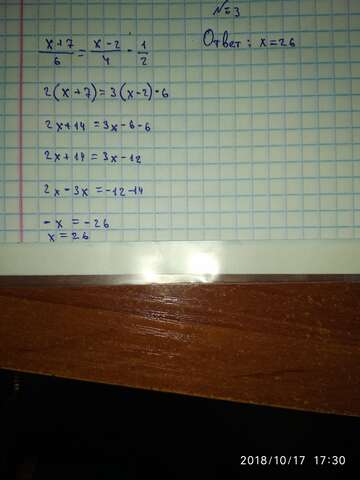 №3
x+7/6 = x-2/4 - 1/2
Ответ: x=26
2(x+7)=3(x-2)-6
2x+14=3x-6-6
2x+14=3x-12
2x-3x=-12-14
-x=-26
x=26
2018/10/17 17:30